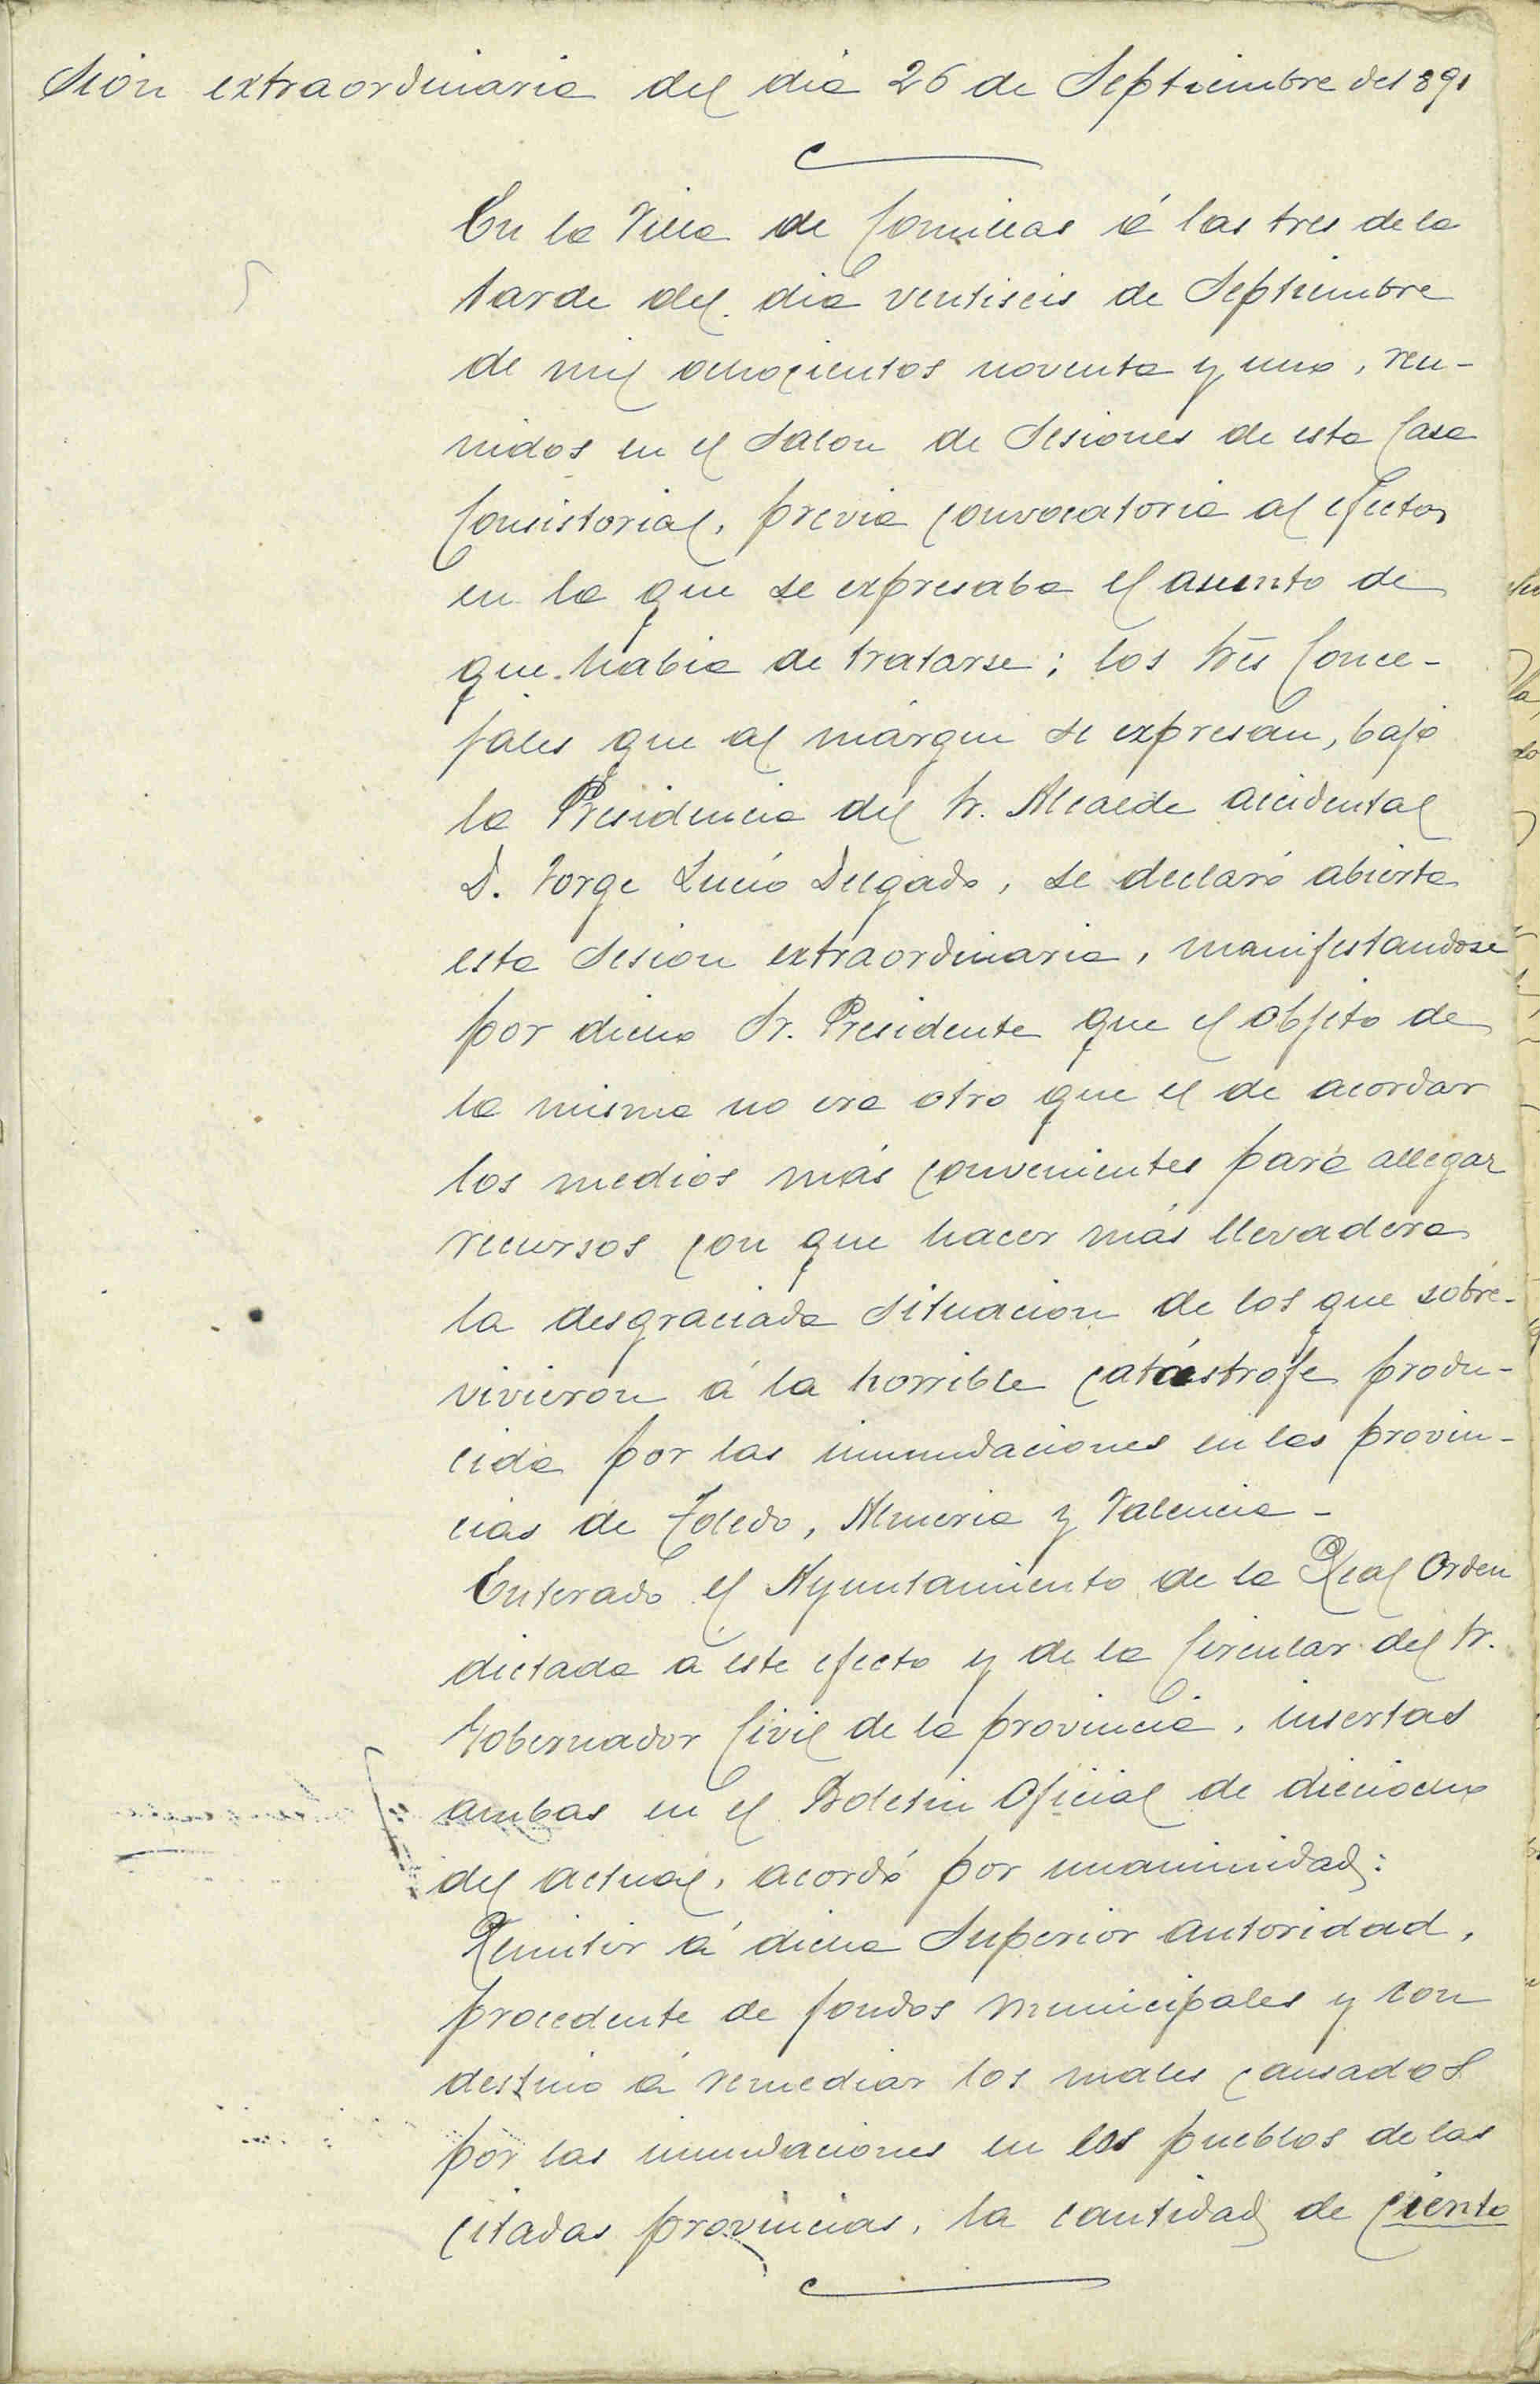 Sión extraordinaria del dia 26 de Septiembre de 1891
En la Villa de Comillas á las tres de la
tarde del dia ventiseis de Septiembre
de mil ochocientos noventa y uno, reu-
nidos en el Salon de Sesiones de esta Casa
Consistorial, previa convocatoria al efecto,
en la que se expresaba el asunto de
que habia de tratarse; los tres Conce-
jales que al márgen se expresan, bajo
la Presidencia del Sr. Alcalde accidental
D. Jorge Lucio Delgado, se declaró abierta
esta Sesion extraordinaria, manifestandose
por dicho Sr. Presidente que el objeto de
la misma no era otro que el de acordar
los medios más convenientes para allegar
recursos con que hacer más llevadera
la desgraciada Situacion de los que sobre-
vivieron á la horrible catástrofe produ-
cida por las inundaciones en las provin-
cias de Toledo, Almeria y Valencia -
Enterado el Ayuntamiento de la Real Orden
dictada á este efecto y de la Circular del Sr.
Gobernador Civil de la provincia, insertas
ambas en el Boletin Oficial de dieciocho
del actual, acordó por unanimidad:
Remitir á dicha Superior autoridad,
procedente de fondos municipales y con
destino á remediar los males causados
por las inundaciones en los pueblos de las
citadas provincias, la cantidad de ciento